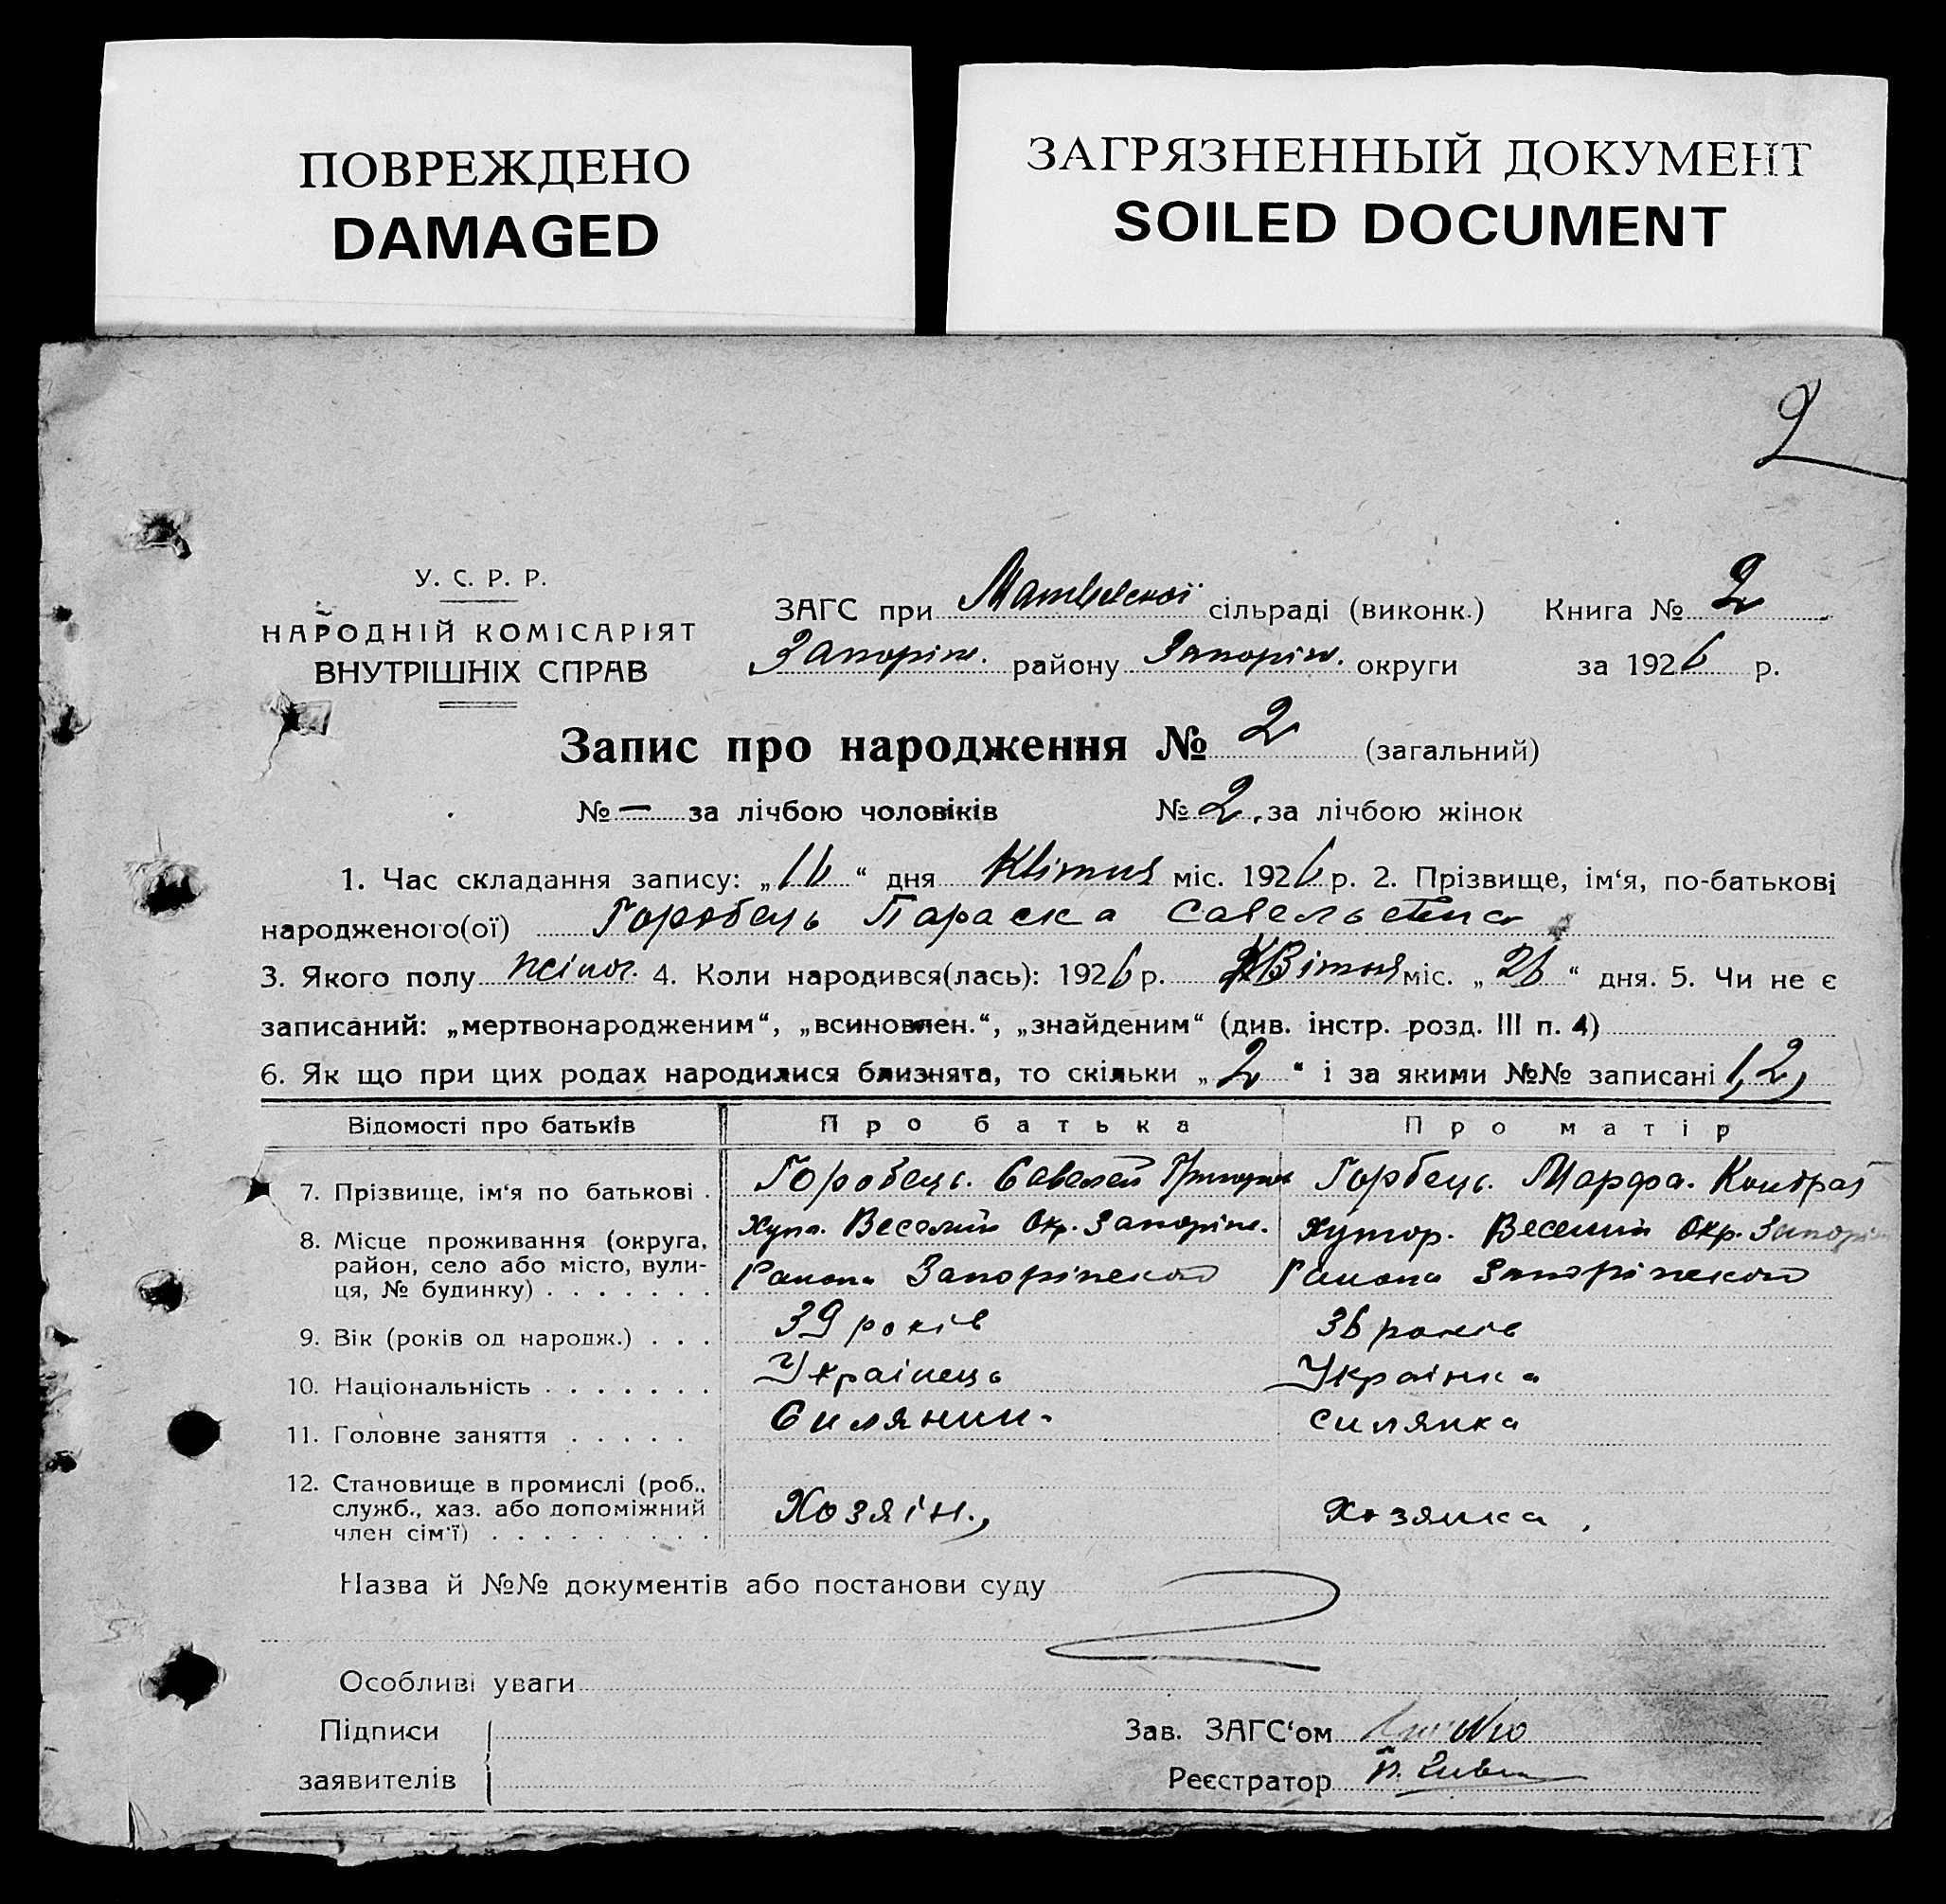 ПОВРЕЖДЕНО
DAMAGED
ЗАГРЯЗНЕННЫЙ ДОКУМЕНТ
SOILED DOCUMENT
2
У. С. Р. Р.
НАРОДНІЙ КОМІСАРІЯТ
ВНУТРІШНІХ СПРАВ
ЗАГС при Матвевской сільраді (виконк.) Книга № 2
Запоріж. району Запоріж. округи за 1926 р.
Запис про народження № 2 (загальний)
№ — за лічбою чоловіків № 2, за лічбою жінок
1. Час складання запису: „16“ дня Квітня міс. 1926 р. 2. Прізвище, ім‘я, по-батькові
народженого(ої) Горобець Параска Савельевна
3. Якого полу жіноч. 4. Коли народився(лась): 1926 р. Квітня міс. „26“ дня. 5. Чи не є
записаний: „мертвонародженим“, „всиновлен.“, „знайденим“ (див. інстр. розд. III п. 4)
6. Як що при цих родах народилися близнята, то скільки „2“ і за якими №№ записані 1, 2,
Відомості про батьків Про батька Про матір
7. Прізвище, ім‘я по батькові . Горобець. Савелей Григоров Горбець. Марфа. Контрат
8. Місце проживання (округа, район, село або місто, вулиця, № будинку) . . . . . . .
Хут. Веселий Окр. Запоріж. Хутор. Веселий Окр. Запоріж
Района Запоріжской Района Запоріжской
9. Вік (років од народж.) . . . 39 років 36 років
10. Національність . . . . . . . Українець Українка
11. Головне заняття . . . . . Силянин. силянка
12. Становище в промислі (роб., служб., хаз. або допоміжний член сім‘ї) . . . . . . . . .
Хозяін., Хозяйка.
Назва й №№ документів або постанови суду
Особливі уваги
Підписи
заявителів
Зав. ЗАГС‘ом
Реєстратор